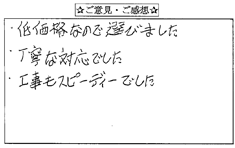 ☆ご意見・ご感想☆
・低価格なので選びました
・丁寧な対応でした
・工事もスピーディーでした